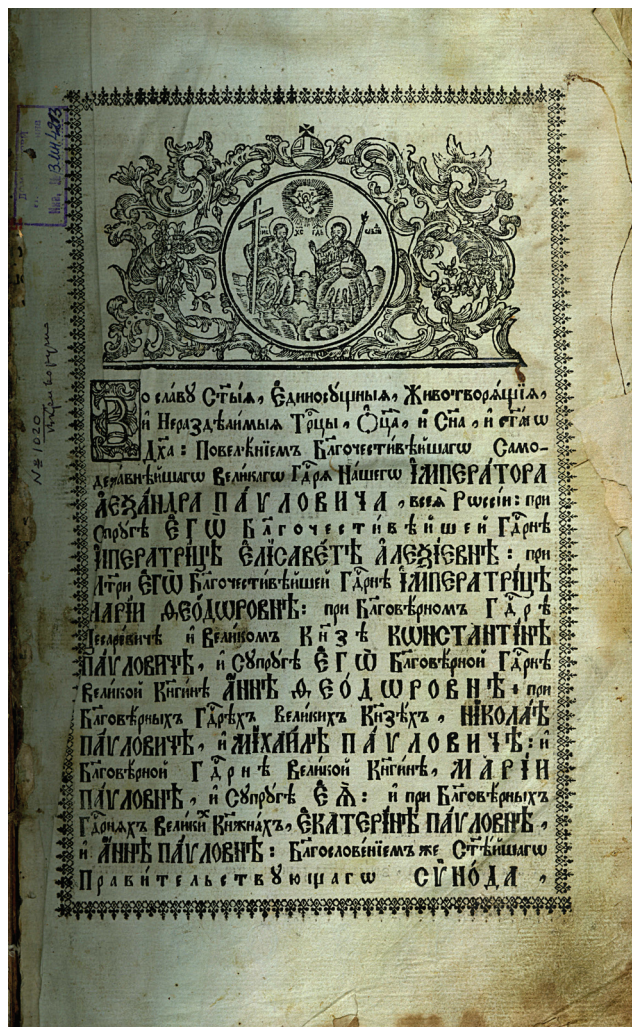 Во сла́вꙋ Ст҃ы́ѧ, Є҆диносꙋ́щныѧ, Животворѧ́щїѧ,
и҆ Нераздѣ́лимыѧ Трⷪ҇цы, Ѻ҆ц҃а̀, и҆ Сн҃а, и҆ ст҃а́гѡ
Дх҃а: Повелѣ́нїемъ Бл҃гочести́вѣйшагѡ Само-
держа́внѣйшагѡ Вели́кагѡ Гдⷭ҇рѧ На́шегѡ І҆МПЕРА́ТОРА
А҆ЛЕѮА́НДРА ПА́ѴЛОВИЧА, всеѧ̀ Рѡссі́и: при
Сꙋпрꙋ́гѣ Є҆ГѠ̀ Бл҃гочести́вѣйшей Гдⷭ҇рнѣ
І҆МПЕРАТРИ́ЦѢ Є҆ЛІСАВЕ́ТѢ А҆ЛЕѮІ́ЕВНѢ: при
Ма́три Є҆ГѠ̀ Бл҃гочести́вѣйшей Гдⷭ҇рнѣ І҆МПЕРАТРИ́ЦѢ
МАРІ́И Ѳ҆ЕО́ДѠРОВНѢ: при Бл҃говѣ́рномъ Гдⷭ҇рѣ
Цесаре́вичѣ и҆ Вели́комъ Кн҃зѣ КѠНСТАНТІ́НѢ
ПА́ѴЛОВИЧѢ, и҆ Сꙋпрꙋ́гѣ Є҆ГѠ̀ Бл҃говѣ́рной Гдⷭ҇рнѣ
Вели́кой Кн҃ги́нѣ А҆́ННѢ Ѳ҆ЕО́ДѠРОВНѢ: при
Бл҃говѣ́рныхъ Гдⷭ҇рѣхъ Вели́кихъ Кн҃зѣхъ, НІКОЛА́Ѣ
ПА́ѴЛОВИЧѢ, и҆ МІХАИ́ЛѢ ПА́ѴЛОВИЧѢ: и҆
Бл҃говѣ́рной Гдⷭ҇рнѣ Вели́кой Кн҃ги́нѣ, МАРІ́И
ПА́ѴЛОВНѢ, и҆ Сꙋпрꙋ́гѣ Є҆Ѧ̀: и҆ при Бл҃говѣ́рныхъ
Гдⷭ҇рнѧхъ Вели́кихъ Кн҃жна́хъ, Є҆КАТЕРІ́НѢ ПА́ѴЛОВНѢ,
и҆ А҆́ННѢ ПА́ѴЛОВНѢ: Бл҃гослове́нїемъ же Ст҃ѣ́йшагѡ
Прави́тельствꙋющагѡ СѴНО́ДА,
№ 1020